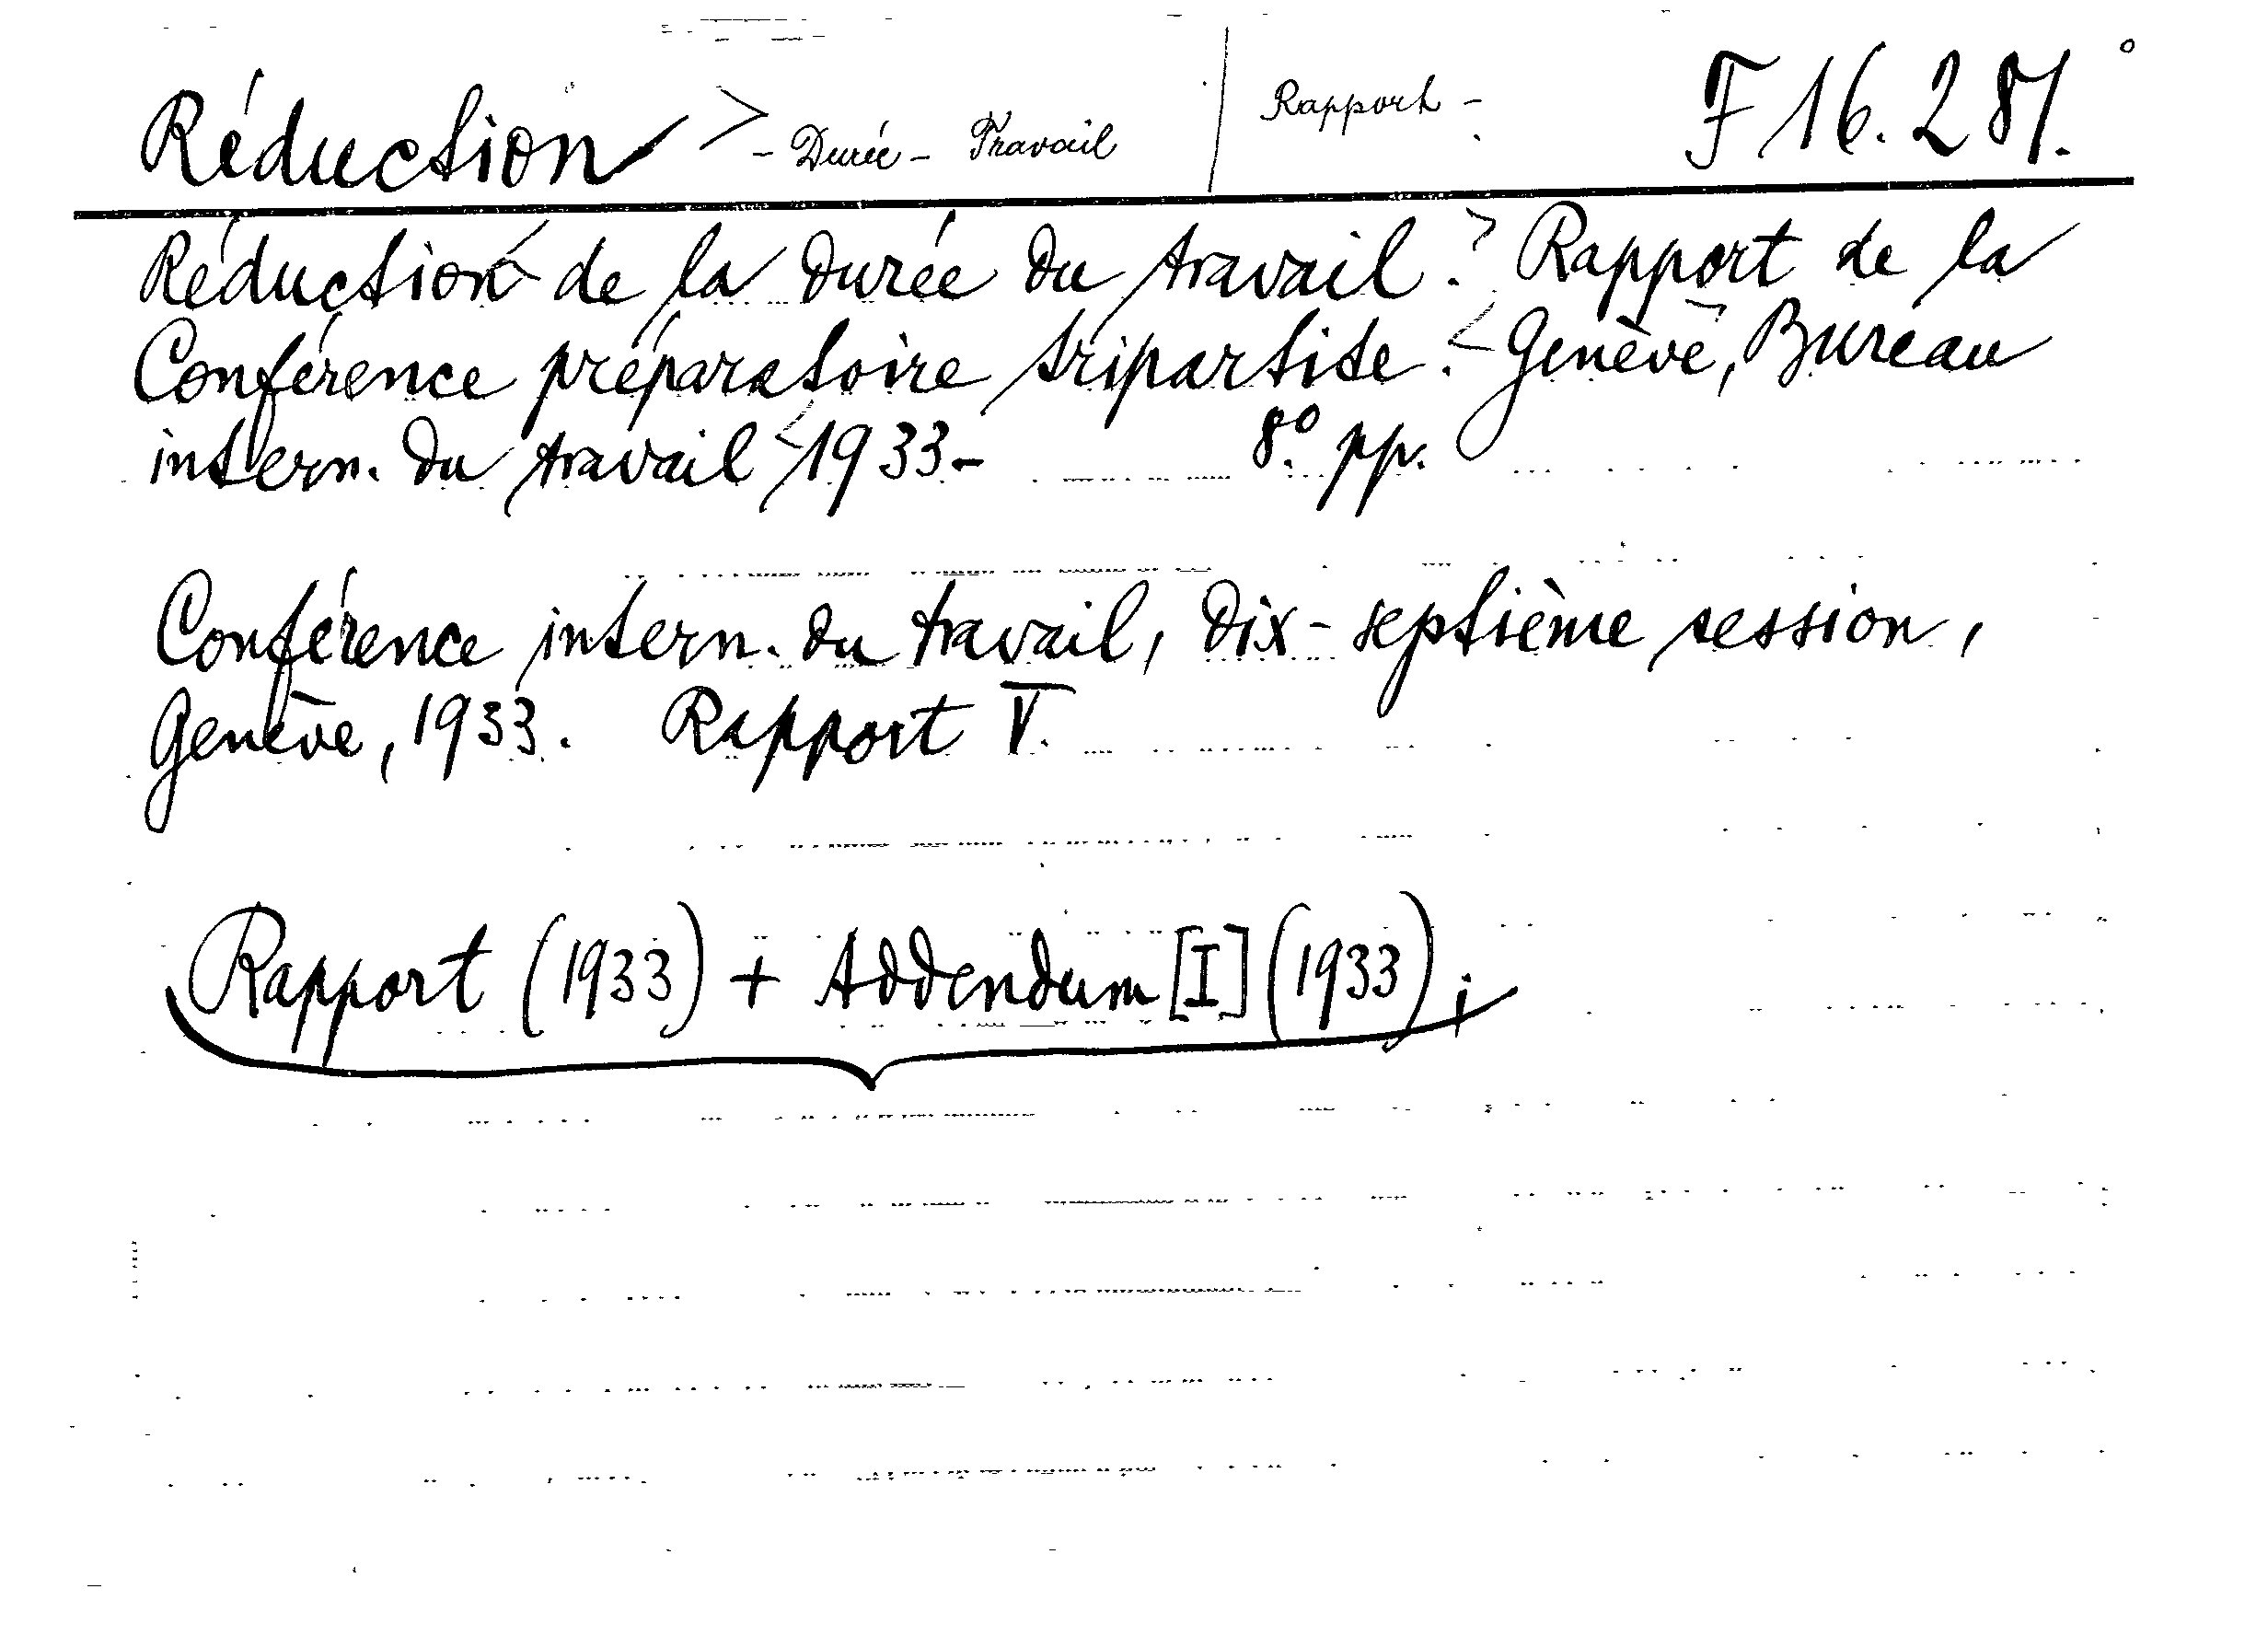 Réduction > - Durée - Travail | Rapport - F 16.287.
Réduction de la durée du travail. > Rapport de la
Conférence préparatoire tripartite. < Genève, Bureau
intern. du travail < 1933- 8° pp.
Conférence intern. du travail, dix-septième session,
Genève, 1933. Rapport V.
Rapport (1933) + Addendum [I] (1933);